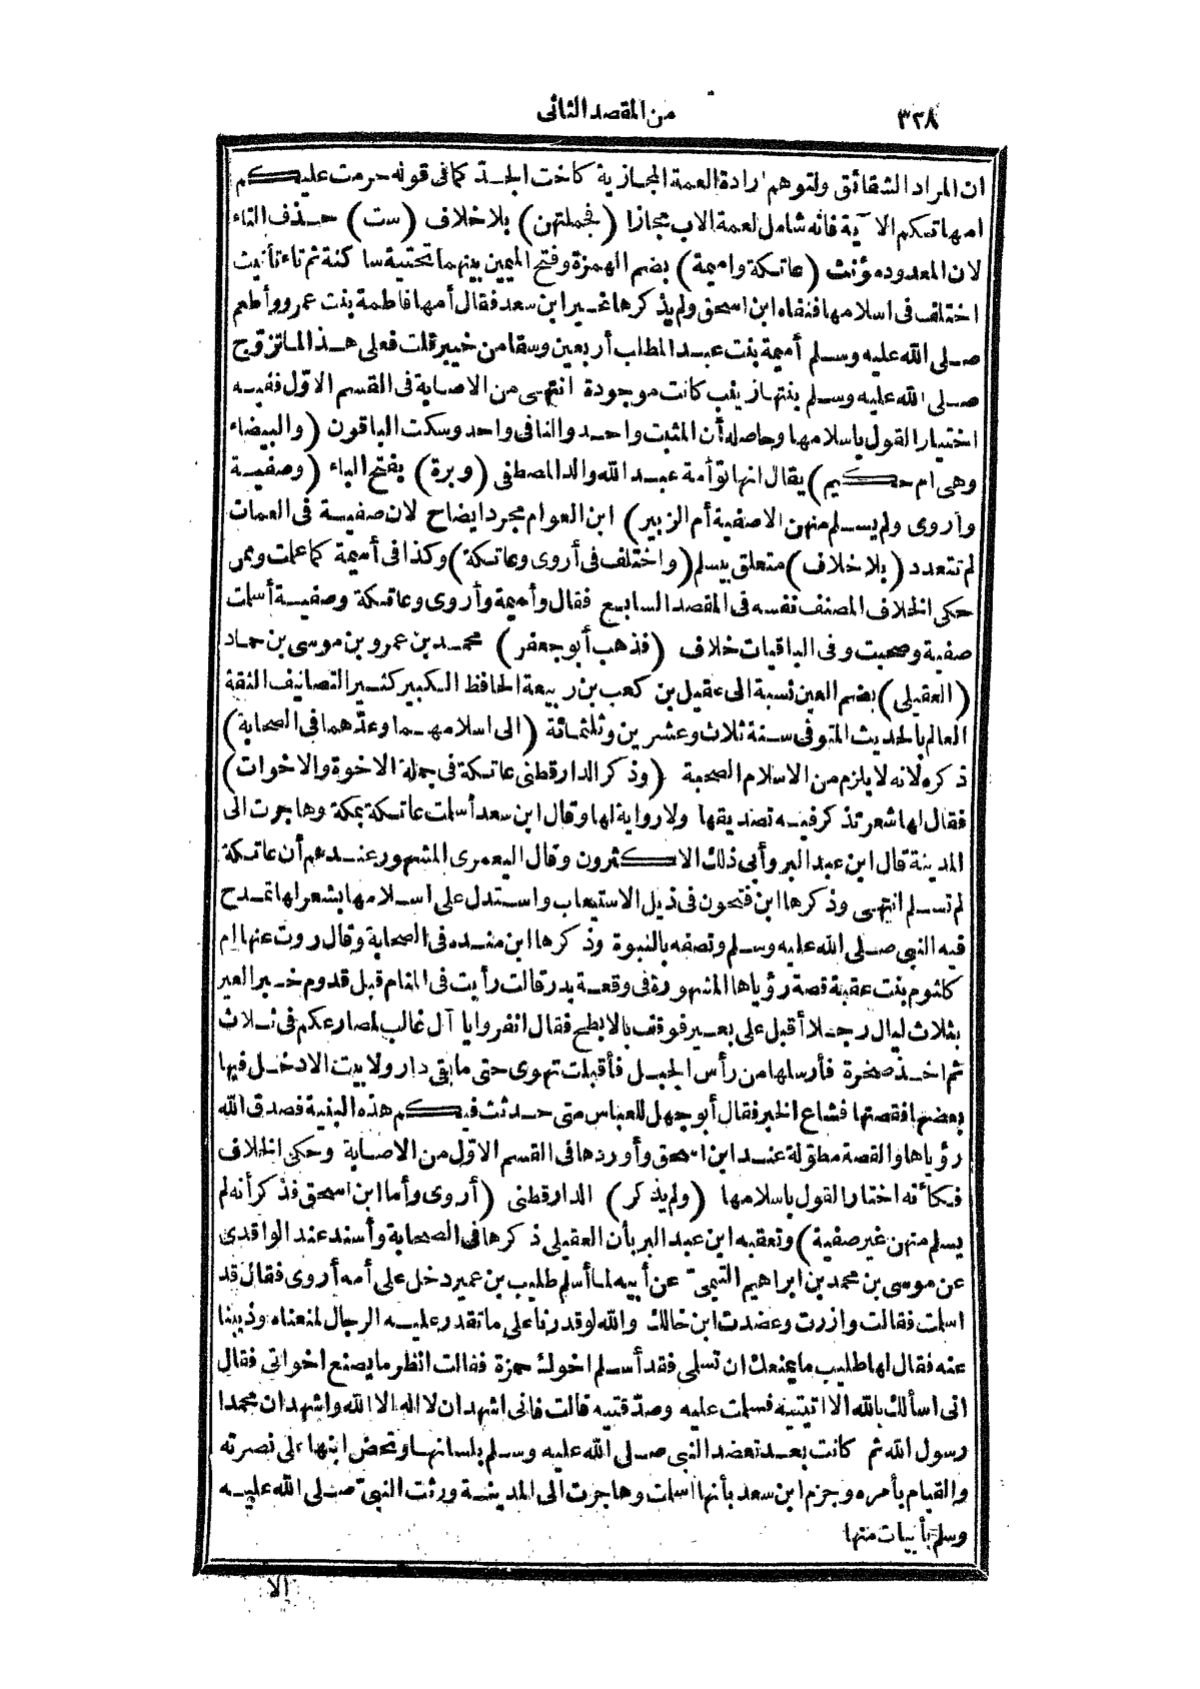 ٣٢٨
من المقصد الثانى
ان المراد الشقائق ولتوهم ارادة العمة المجازية كاخت الجد كما فى قوله حرمت عليكم
امهاتكم الآية فانه شامل لعمة الاب مجازا (فجملتهن) بلا خلاف (ست) حذف التاء
لان المعدود مؤنث (عاتكة واميمة) بضم الهمزة وفتح الميمين بينهما تحتية ساكنة ثم تاء تأنيث
اختلف فى اسلامها فنفاه ابن اسحق ولم يذكرها غير ابن سعد فقال أمها فاطمة بنت عمرو وأطعم
صلى الله عليه وسلم أميمة بنت عبد المطلب أربعين وسقا من خيبر قلت فعلى هذا لما تزوج
صلى الله عليه وسلم بنتها زينب كانت موجودة انتهى من الاصابة فى القسم الاوّل ففيه
اختيار القول باسلامها وحاصله أن المثبت واحد والنافى واحد وسكت الباقون (والبيضاء
وهى ام حكيم) يقال انها توأمة عبد الله والد المصطفى (وبرة) بفتح الباء (وصفية
وأروى ولم يسلم منهن الا صفية أم الزبير) ابن العوام مجرد ايضاح لان صفية فى العمات
لم تتعدد (بلا خلاف) متعلق بيسلم (واختلف فى أروى وعاتكة) وكذا فى أميمة كما علمت وممن
حكى الخلاف المصنف نفسه فى المقصد السابع فقال وأميمة وأروى وعاتكة وصفية أسلمت
صفية وصحبت وفى الباقيات خلاف (فذهب أبو جعفر) محمد بن عمرو بن موسى بن حماد
(العقيلى) بضم العين نسبة الى عقيل بن كعب بن ربيعة الحافظ الكبير كثير التصانيف الثقة
العالم بالحديث المتوفى سنة ثلاث وعشرين وثلثمائة (الى اسلامهما وعدّهما فى الصحابة)
ذكره لانه لا يلزم من الاسلام الصحبة (وذكر الدارقطنى عاتكة فى جملة الاخوة والاخوات)
فقال لها شعر تذكر فيه تصديقها ولا رواية لها وقال ابن سعد أسلمت عاتكة بمكة وهاجرت الى
المدينة قال ابن عبد البر وأبى ذلك الاكثرون وقال اليعمرى المشهور عندهم أن عاتكة
لم تسلم انتهى وذكرها ابن فتحون فى ذيل الاستيعاب واستدل على اسلامها بشعر لها تمدح
فيه النبى صلى الله عليه وسلم وتصفه بالنبوة وذكرها ابن منده فى الصحابة وقال روت عنها ام
كلثوم بنت عقبة قصة رؤياها المشهورة فى وقعة بدر قالت رأيت فى المنام قبل قدوم خبر العير
بثلاث ليال رجلا أقبل على بعير فوقف بالابطح فقال انفروا يا آل غالب لمصارعكم فى ثلاث
ثم اخذ صخرة فأرسلها من رأس الجبل فأقبلت تهوى حتى ما بقى دار ولا بيت الا دخل فيها
بعضها فقصتها فشاع الخبر فقال أبو جهل للعباس متى حدثت فيكم هذه البنية فصدق الله
رؤياها والقصة مطوّلة عند ابن اسحق وأوردها فى القسم الاوّل من الاصابة وحكى الخلاف
فيكأنه اختار القول باسلامها (ولم يذكر) الدارقطنى (أروى وأما ابن اسحق فذكر أنه لم
يسلم منهن غير صفية) وتعقبه ابن عبد البر بأن العقيلى ذكرها فى الصحابة وأسند عند الواقدى
عن موسى بن محمد بن ابراهيم التيمىّ عن أبيه لما أسلم طليب بن عمير دخل على أمه أروى فقال قد
اسلمت فقالت وازرت وعضدت ابن خالك والله لو قدرنا على ما تقدر عليه الرجال لمنعناه وذببنا
عنه فقال لها طليب ما يمنعك ان تسلمى فقد أسلم اخوك حمزة فقالت انظر ما يصنع اخواتى فقال
انى اسألك بالله الا اتيتيه فسلمت عليه وصدّقتيه قالت فانى اشهد ان لا اله الا الله واشهد ان محمدا
رسول الله ثم كانت بعد تعضد النبى صلى الله عليه وسلم بلسانها وتحض ابنها على نصرته
والقيام بأمره وجزم ابن سعد بأنها اسلمت وهاجرت الى المدينة ورثت النبىّ صلى الله عليه
وسلم بأبيات منها
الا